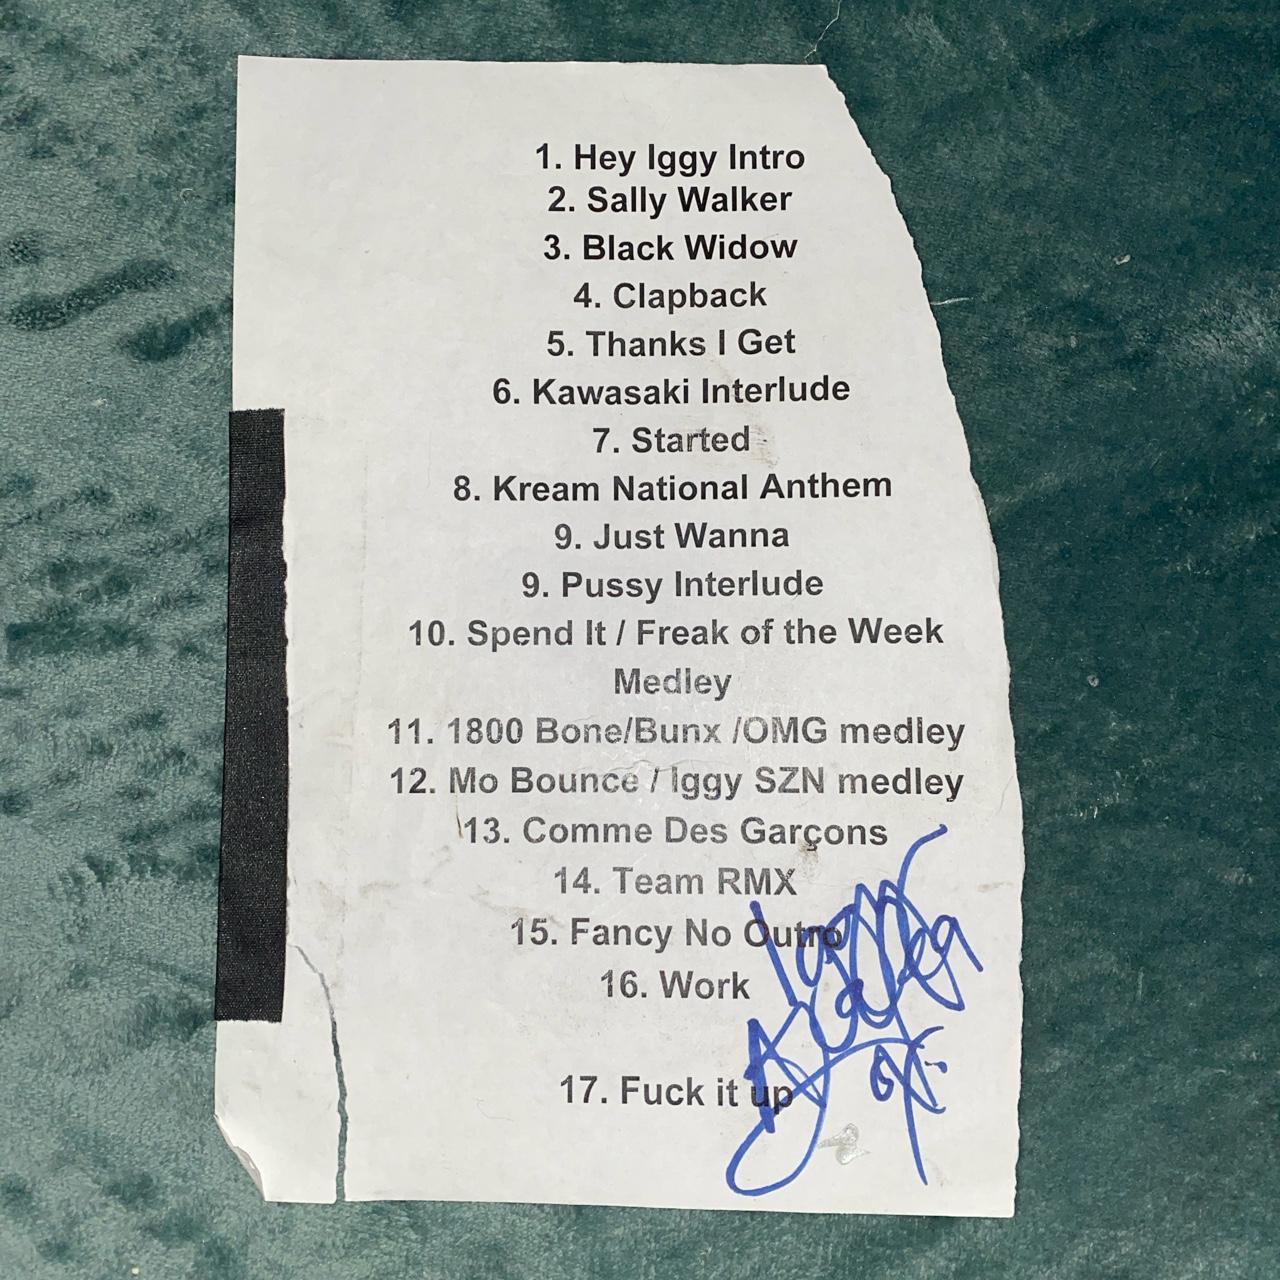 1. Hey Iggy Intro
2. Sally Walker
3. Black Widow
4. Clapback
5. Thanks I Get
6. Kawasaki Interlude
7. Started
8. Kream National Anthem
9. Just Wanna
9. Pussy Interlude
10. Spend It / Freak of the Week
Medley
11. 1800 Bone/Bunx /OMG medley
12. Mo Bounce / Iggy SZN medley
13. Comme Des Garçons
14. Team RMX
15. Fancy No Outro
16. Work
17. Fuck it up